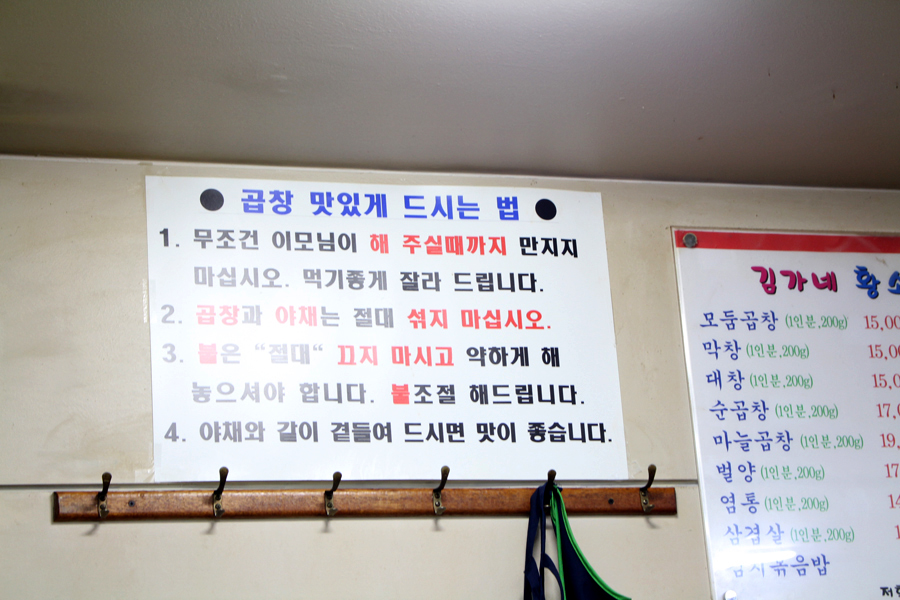 ● 곱창 맛있게 드시는 법 ●
1. 무조건 이모님이 해 주실때까지 만지지
마십시오. 먹기좋게 잘라 드립니다.
2. 곱창과 야채는 절대 섞지 마십시오.
3. 불은 “절대“ 끄지 마시고 약하게 해
놓으셔야 합니다. 불조절 해드립니다.
4. 야채와 같이 곁들여 드시면 맛이 좋습니다.
김가네
모둠곱창 (1인분,200g)
막창 (1인분,200g)
대창 (1인분,200g)
순곱창 (1인분,200g)
마늘곱창 (1인분,200g)
벌양 (1인분,200g)
염통 (1인분,200g)
삼겹살 (1인분,200g)